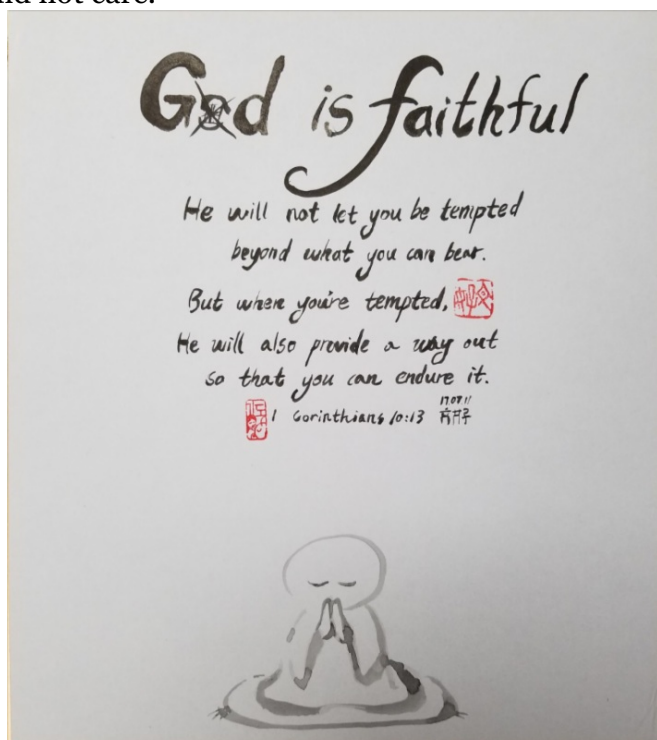 nd not care.
God is faithful
He will not let you be tempted
beyond what you can bear.
But when you're tempted,
He will also provide a way out
so that you can endure it.
1 Corinthians 10:13
170811